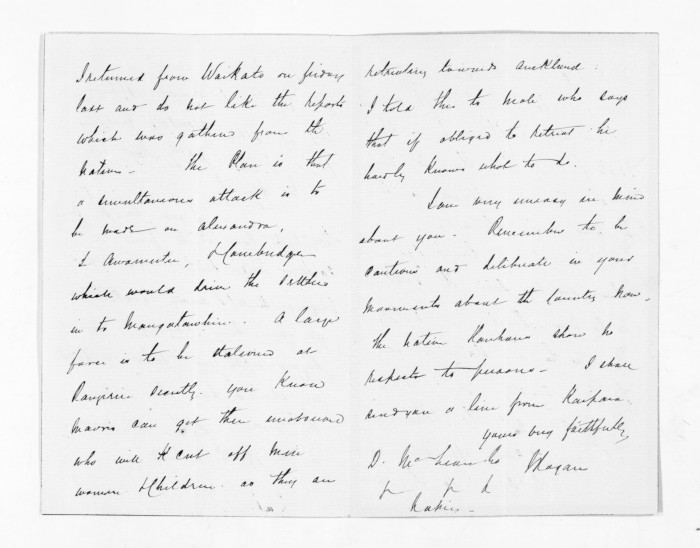 I returned from Waikato on friday
last and do not like the reports
which was gathered from the
natives - The Plan is that
a simultaneous attack is to
be made on Alexandra,
& Hanebridge
which would drive the settlers
in to Mangatawhiri. A large
force is to be stationed at
Rangiriri secretly. you know
Maoris can get there unobserved
who will cut off men
women & Children as they are
retreating towards Auckland.
I told this to Mole who says
that if obliged to retreat he
hardly knows what to do.
I am very uneasy in mind
about you. Remember to be
cautious and deliberate in your
movements about the Country now.
The native Hauhaus show no
respects to persons - I shall
send you a line from Kaipara.
yours very faithfully
D. McLean Esq Rogan
Napier